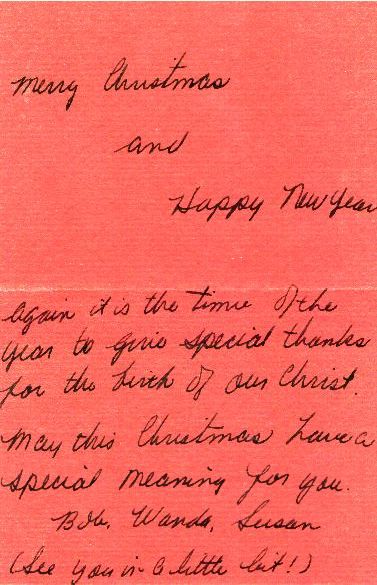 Merry Christmas
and
Happy New Year
Again it is the time of the
year to give special thanks
for the birth of our Christ.
May this Christmas have a
special meaning for you.
Bob, Wanda, Susan
(See you in a little bit!)